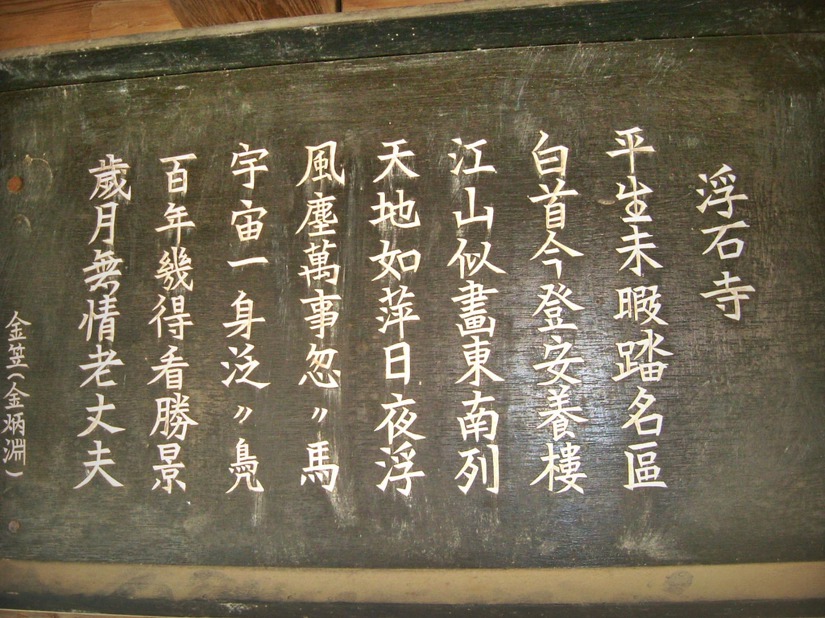 浮石寺
平生未暇踏名區
白首今登安養樓
江山似畫東南列
天地如萍日夜浮
風塵萬事忽〃馬
宇宙一身泛〃鳧
百年幾得看勝景
歲月無情老丈夫
金笠(金炳淵)